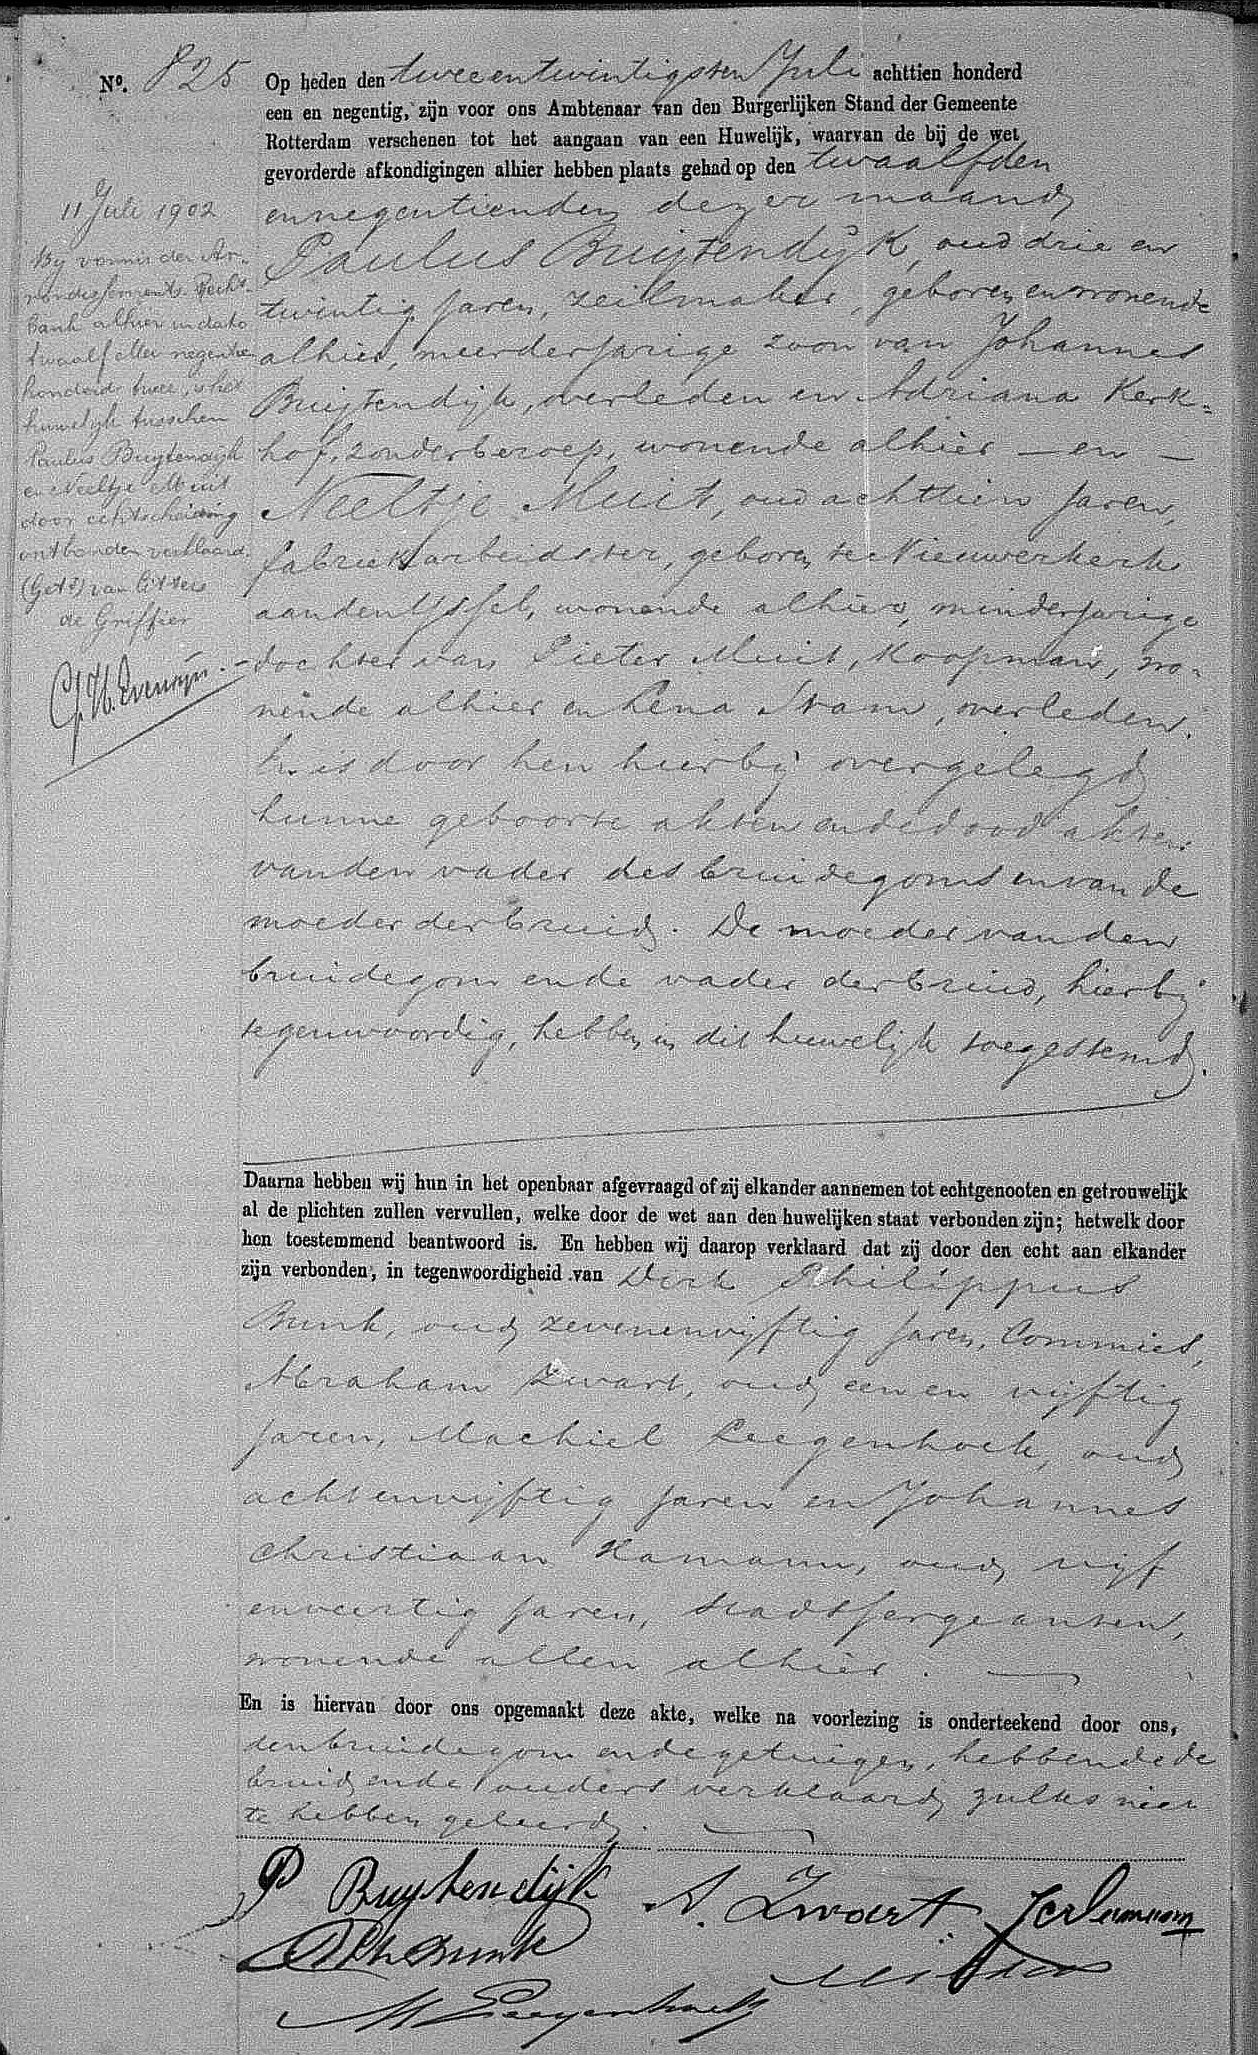 No. 825
Op heden den tweeentwintigsten Juli achttien honderd
een en negentig, zijn voor ons Ambtenaar van den Burgerlijken Stand der Gemeente
Rotterdam verschenen tot het aangaan van een Huwelijk, waarvan de bij de wet
gevorderde afkondigingen alhier hebben plaats gehad op den twaalfden
en negentienden dezer maand
Paulus Buijtendijk, oud drie en
twintig jaren, zeilmaker, geboren en wonende
alhier, meerderjarige zoon van Johannes
Buijtendijk, overleden en Adriana Kerk-
hof, zonder beroep, wonende alhier — en —
Neeltje Muit, oud achttien jaren,
fabrieksarbeidster, geboren te Nieuwerkerk
aan den IJssel, wonende alhier, minderjarige
dochter van Pieter Muit, Koopman, wo-
nende alhier en Lena Stam, overleden.
is door hen hierbij overgelegd
hunne geboorte akten en de dood akten
van den vader des bruidegoms en van de
moeder der bruid. De moeder van den
bruidegom en de vader der bruid, hierbij
tegenwoordig, hebben in dit huwelijk toegestemd.
11 Juli 1902
Bij vonnis der Ar-
rondissements-Recht-
bank alhier in dato
twaalf negentien-
honderd twee, is het
huwelijk tusschen
Paulus Buijtendijk
en Neeltje Muit
door echtscheiding
ontbonden verklaard.
(Get.) van Citters
de Griffier
Daarna hebben wij hun in het openbaar afgevraagd of zij elkander aannemen tot echtgenooten en getrouwelijk
al de plichten zullen vervullen, welke door de wet aan den huwelijken staat verbonden zijn; hetwelk door
hen toestemmend beantwoord is. En hebben wij daarop verklaard dat zij door den echt aan elkander
zijn verbonden, in tegenwoordigheid van Dirk Philippus
Bunk, oud zevenenvijftig jaren, Commies,
Abraham Zwart, oud een en vijftig
jaren, Machiel Leegenhoek, oud
achtenvijftig jaren en Johannes
Christiaan Hamann, oud vijf
enveertig jaren, stadssergeanten,
wonende allen alhier.
En is hiervan door ons opgemaakt deze akte, welke na voorlezing is onderteekend door ons,
den bruidegom en de getuigen, hebbende de
bruid en de ouders verklaard zulks niet
te hebben geleerd.
P Buytendijk A. Zwart
DPh Bunk
M Leegenhoek